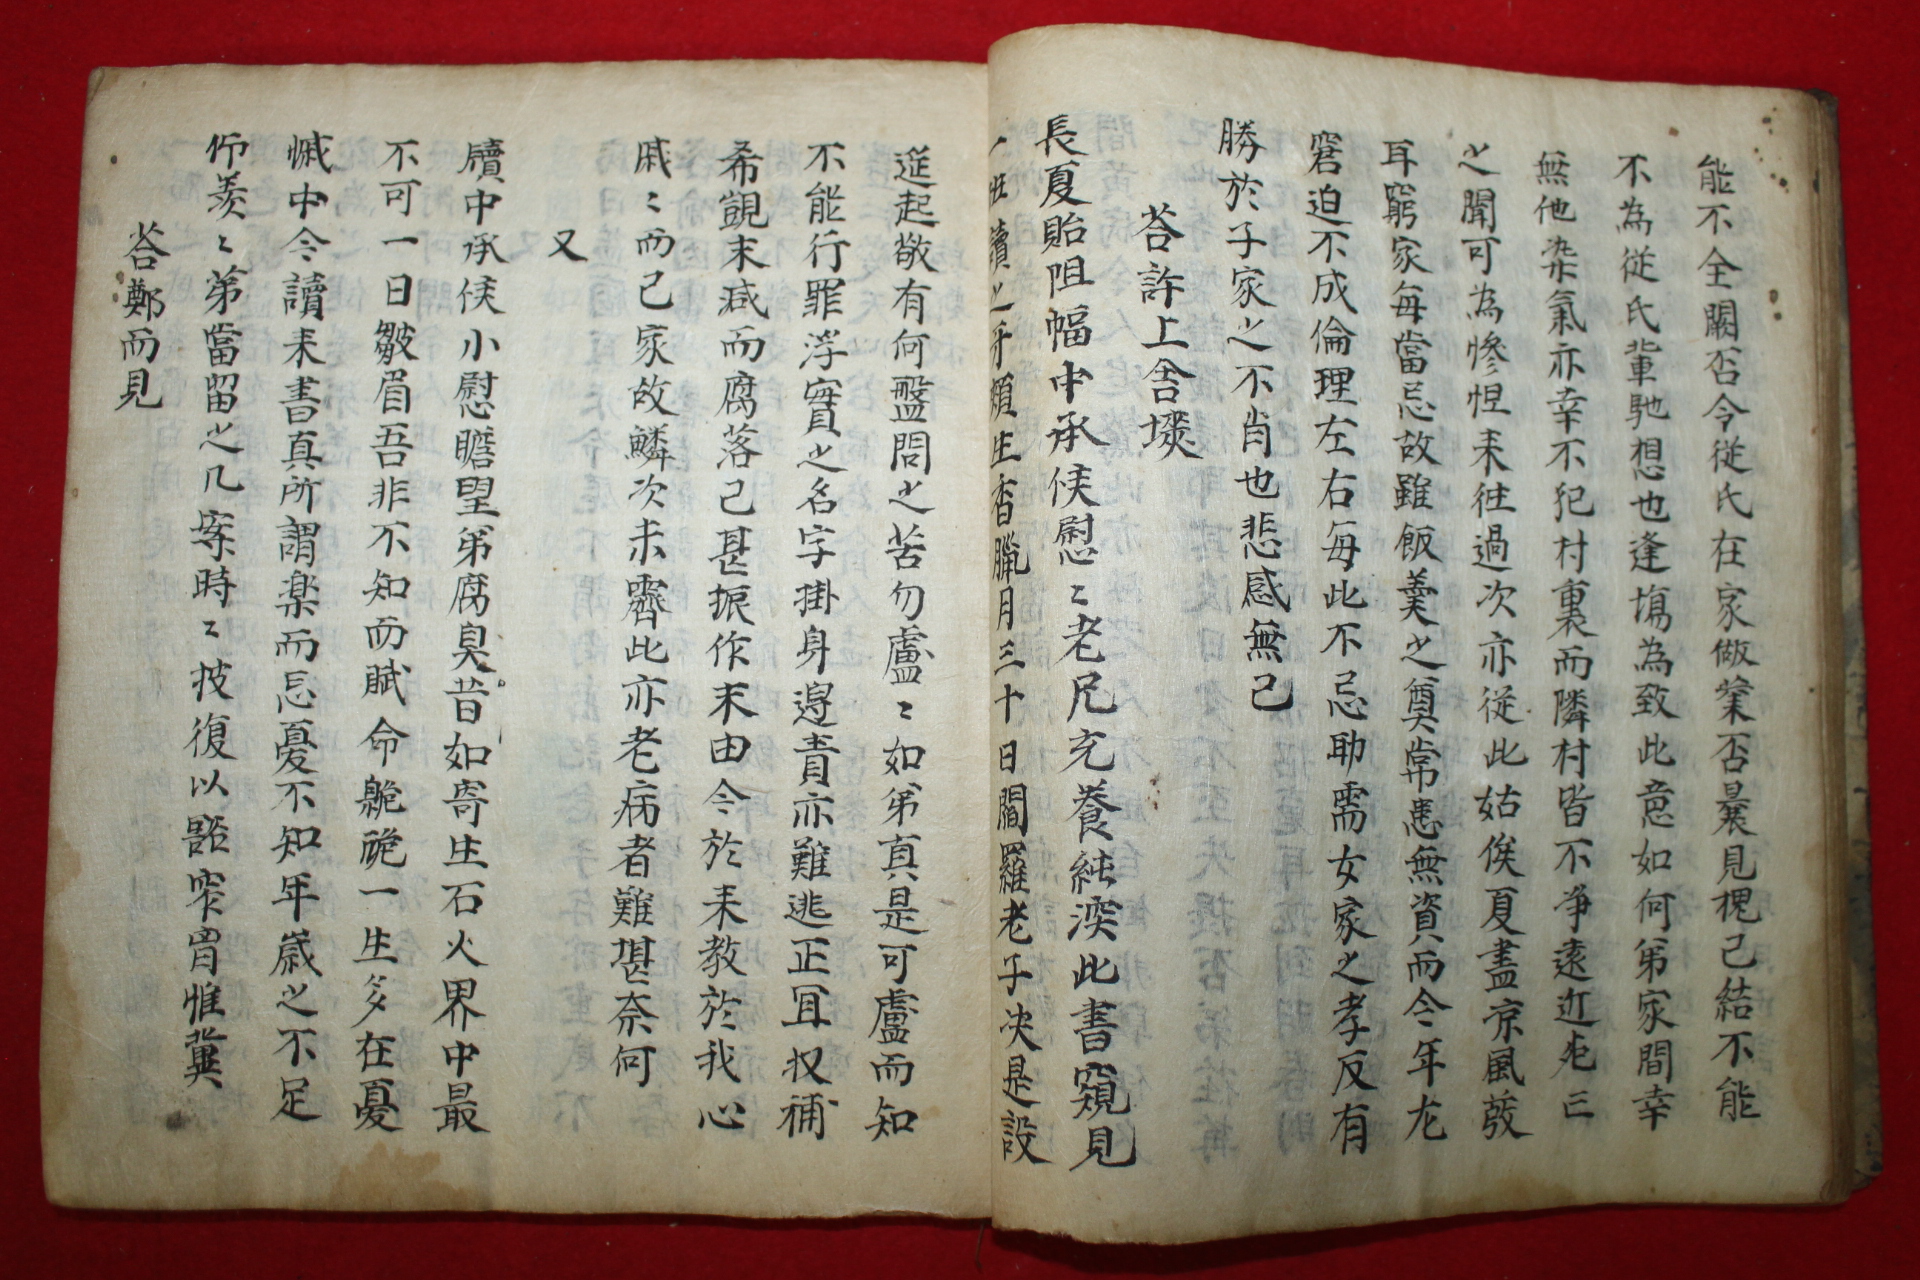 能不全闕否今從氏在家做業否曩見槐已結不能
不為從氏輩馳想也逢塲為致此意如何弟家間幸
無他染氣亦幸不犯村裏而隣村皆不净遠近死亡
之聞可為慘怛来徃過次亦從此姑俟夏盡凉風發
耳窮家每當忌故雖飯羹之奠常患無資而今年尤
窘迫不成倫理左右每此不忌助需女家之孝反有
勝於子家之不肖也悲感無已
荅許上舍墣
長夏貽阻幅中承候慰〻老兄充養純深此書窺見
班讀之牙頰生香臘月三十日閻羅老子决是設
筵起敬有何盤問之苦勿慮〻如弟真是可慮而知
不能行罪浮實之名字掛身邉責亦難逃正冝収補
希覬末减而腐落已甚振作末由今於来教於我心
戚〻而已家故鱗次未霽此亦老病者難堪奈何
又
牘中承候小慰瞻望弟腐臭昔如寄生石火界中最
不可一日皺眉吾非不知而賦命臲卼一生多在憂
慽中今讀来書真所謂楽而忘憂不知年歳之不足
仰羡〻弟當留之几案時〻披復以豁窄胷惟冀
荅鄭而見